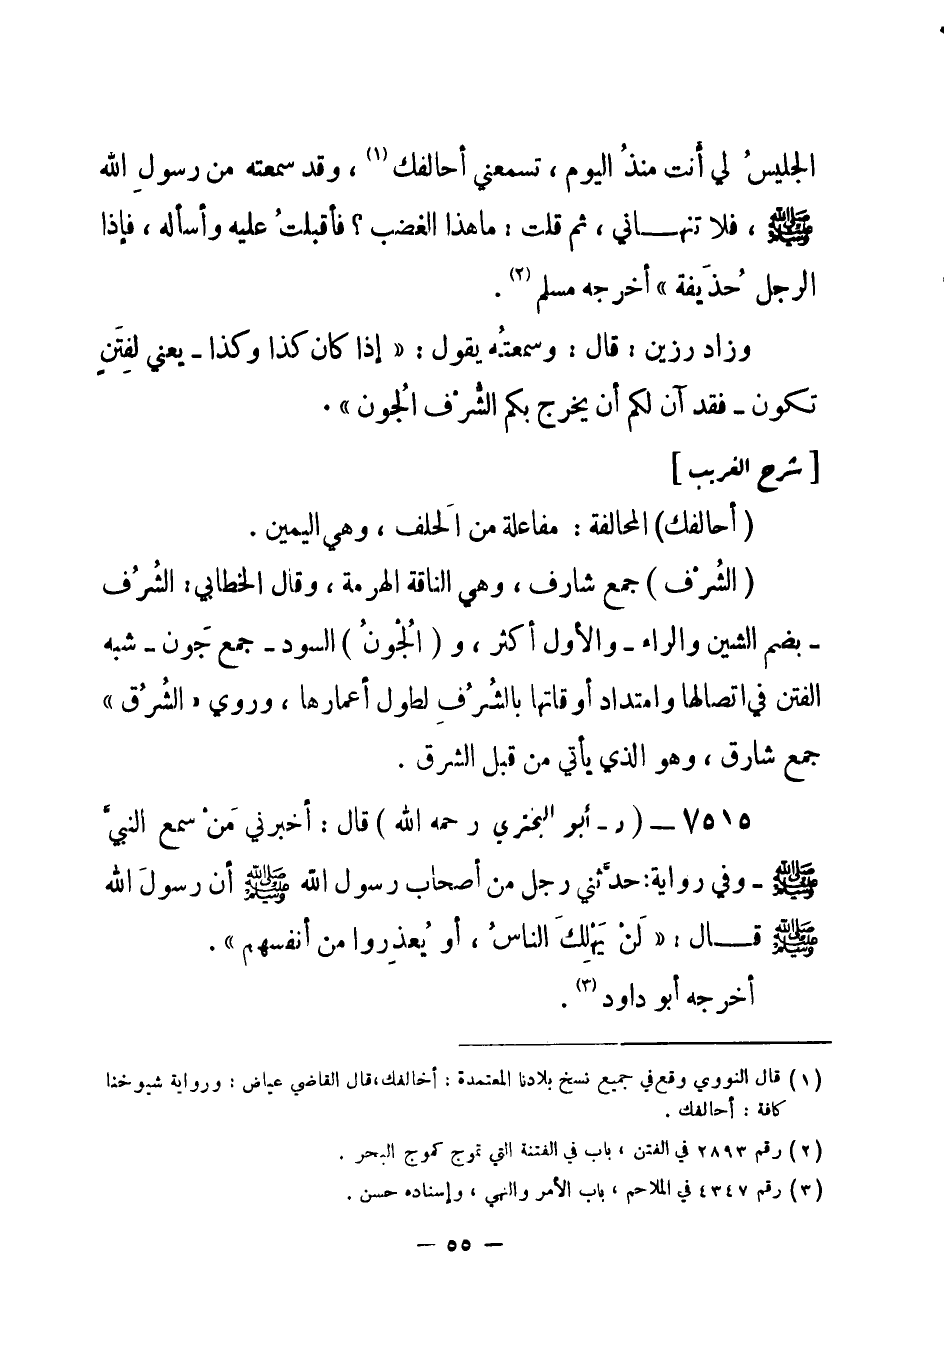 الجليسُ لي أنت منذُ اليوم ، تسمعني أحالفك (١) ، وقد سمعته من رسولِ الله
ﷺ ، فلا تنهـــاني ، ثم قلت : ماهذا الغضب ؟ فأقبلتُ عليه وأسأله ، فإذا
الرجل حُذَيفة » أخرجه مسلم (٢) .
وزاد رزين : قال : وسمعتُه يقول : « إذا كان كذا وكذا ـ يعني لفِتَنٍ
تكون ـ فقد آن لكم أن يخرج بكم الشُّرْف الجُون » .
[ شرح الغريب ]
( أحالفك) المحالفة : مفاعلة من الَحلف ، وهي اليمين .
( الشُرْف ) جمع شارف ، وهي الناقة الهرمة ، وقال الخطابي : الشُرُف
ـ بضم الشين والراء ـ والأول أكثر ، و ( الجُونُ ) السود ـ جمع جَون ـ شبه
الفتن في اتصالها وامتداد أوقاتها بالشُرُفِ لطول أعمارها ، وروي « الشُرُق »
جمع شارق ، وهو الذي يأتي من قبل الشرق .
٧٥١٥ ــ ( د ـ أبو البختري رحمه الله ) قال : أخبرني مَنْ سمع النبيَّ
ﷺ ـ وفي رواية: حدَّثني رجل من أصحاب رسول الله ﷺ أن رسولَ الله
ﷺ قـــال : « لَنْ يَهْلِكَ الناسُ ، أو يُعذِروا من أنفسهم » .
أخرجه أبو داود (٣) .
(١) قال النووي وقع في جميع نسخ بلادنا المعتمدة : أخالفك،قال القاضي عياض : ورواية شيوخنا
كافة : أحالفك .
(٢) رقم ٢٨٩٣ في الفتن ، باب في الفتنة التي تموج كموج البحر .
(٣) رقم ٤٣٤٧ في الملاحم ، باب الأمر والنهي ، وإسناده حسن .
— ٥٥ —